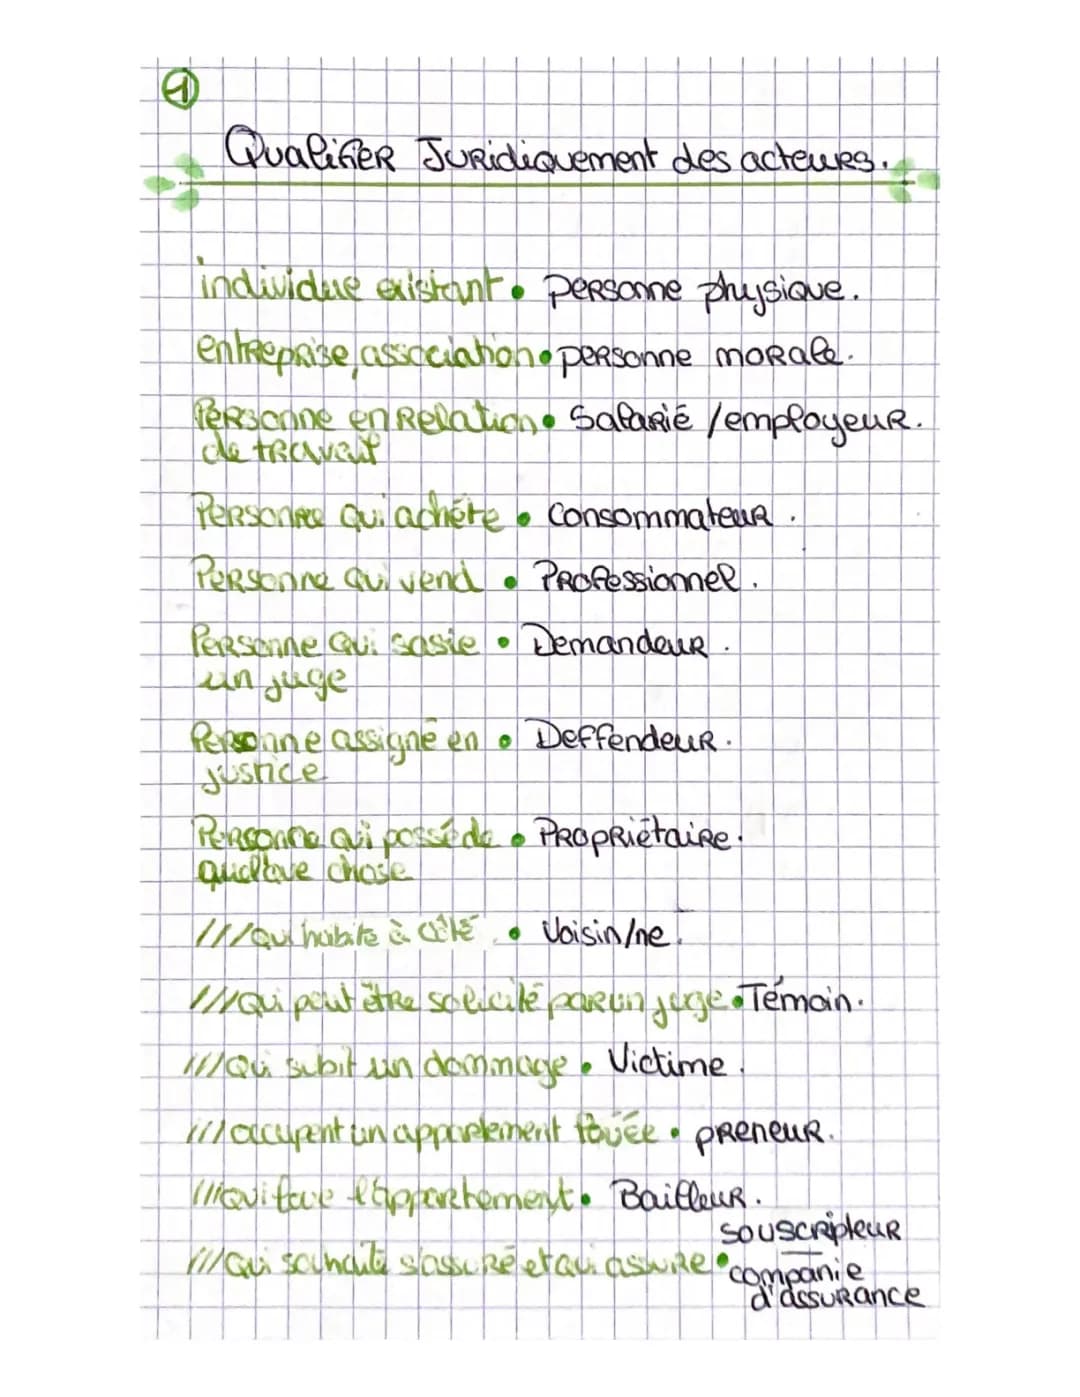 1
Qualifier Juridiquement des acteurs.
individue existant • personne physique.
entreprise, association • personne morale.
Personne en Relation • Salarié / employeur.
de travail
Personne qui achète • Consommateur.
Personne qui vend • Professionnel.
Personne qui sasie • Demandeur.
un juge
Personne assigné en • Deffendeur.
justice
Personne qui possède • Propriétaire.
quelque chose
/// qui habite à côté • Voisin/ne.
/// qui peut être solicité par un juge • Témoin.
/// Qui subit un dommage • Victime.
/// occupent un appartement louée • preneur.
/// qui loue l'appartement • Bailleur.
souscripteur
/// Qui souhaite s'assuré et qui assure • companie
d'assurance